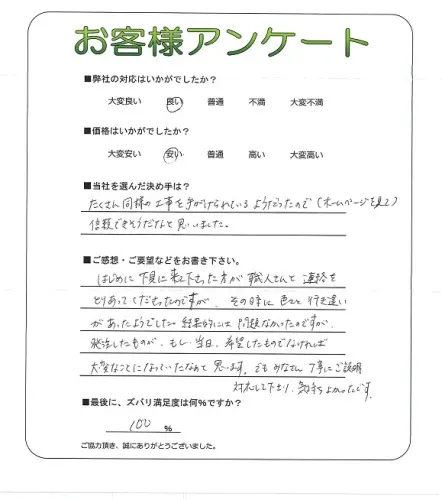 お客様アンケート
■弊社の対応はいかがでしたか？
大変良い 良い 普通 不満 大変不満
■価格はいかがでしたか？
大変安い 安い 普通 高い 大変高い
■当社を選んだ決め手は？
たくさん同様の工事を手がけられているようだったので（ホームページを見て）
信頼できそうだなと思いました。
■ご感想・ご要望などをお書き下さい。
はじめに下見に来て下さった方が職人さんと連絡を
とりあってくださったのですが、その時に色々と行き違い
があったようでした。結果的には問題なかったのですが、
発注したものが、もし、当日、希望したものでなければ
大変なことになっていたなあと思います。でもみなさん丁寧にご説明
対応して下さり、気持ちよかったです。
■最後に、ズバリ満足度は何％ですか？
100 ％
ご協力頂き、誠にありがとうございました。